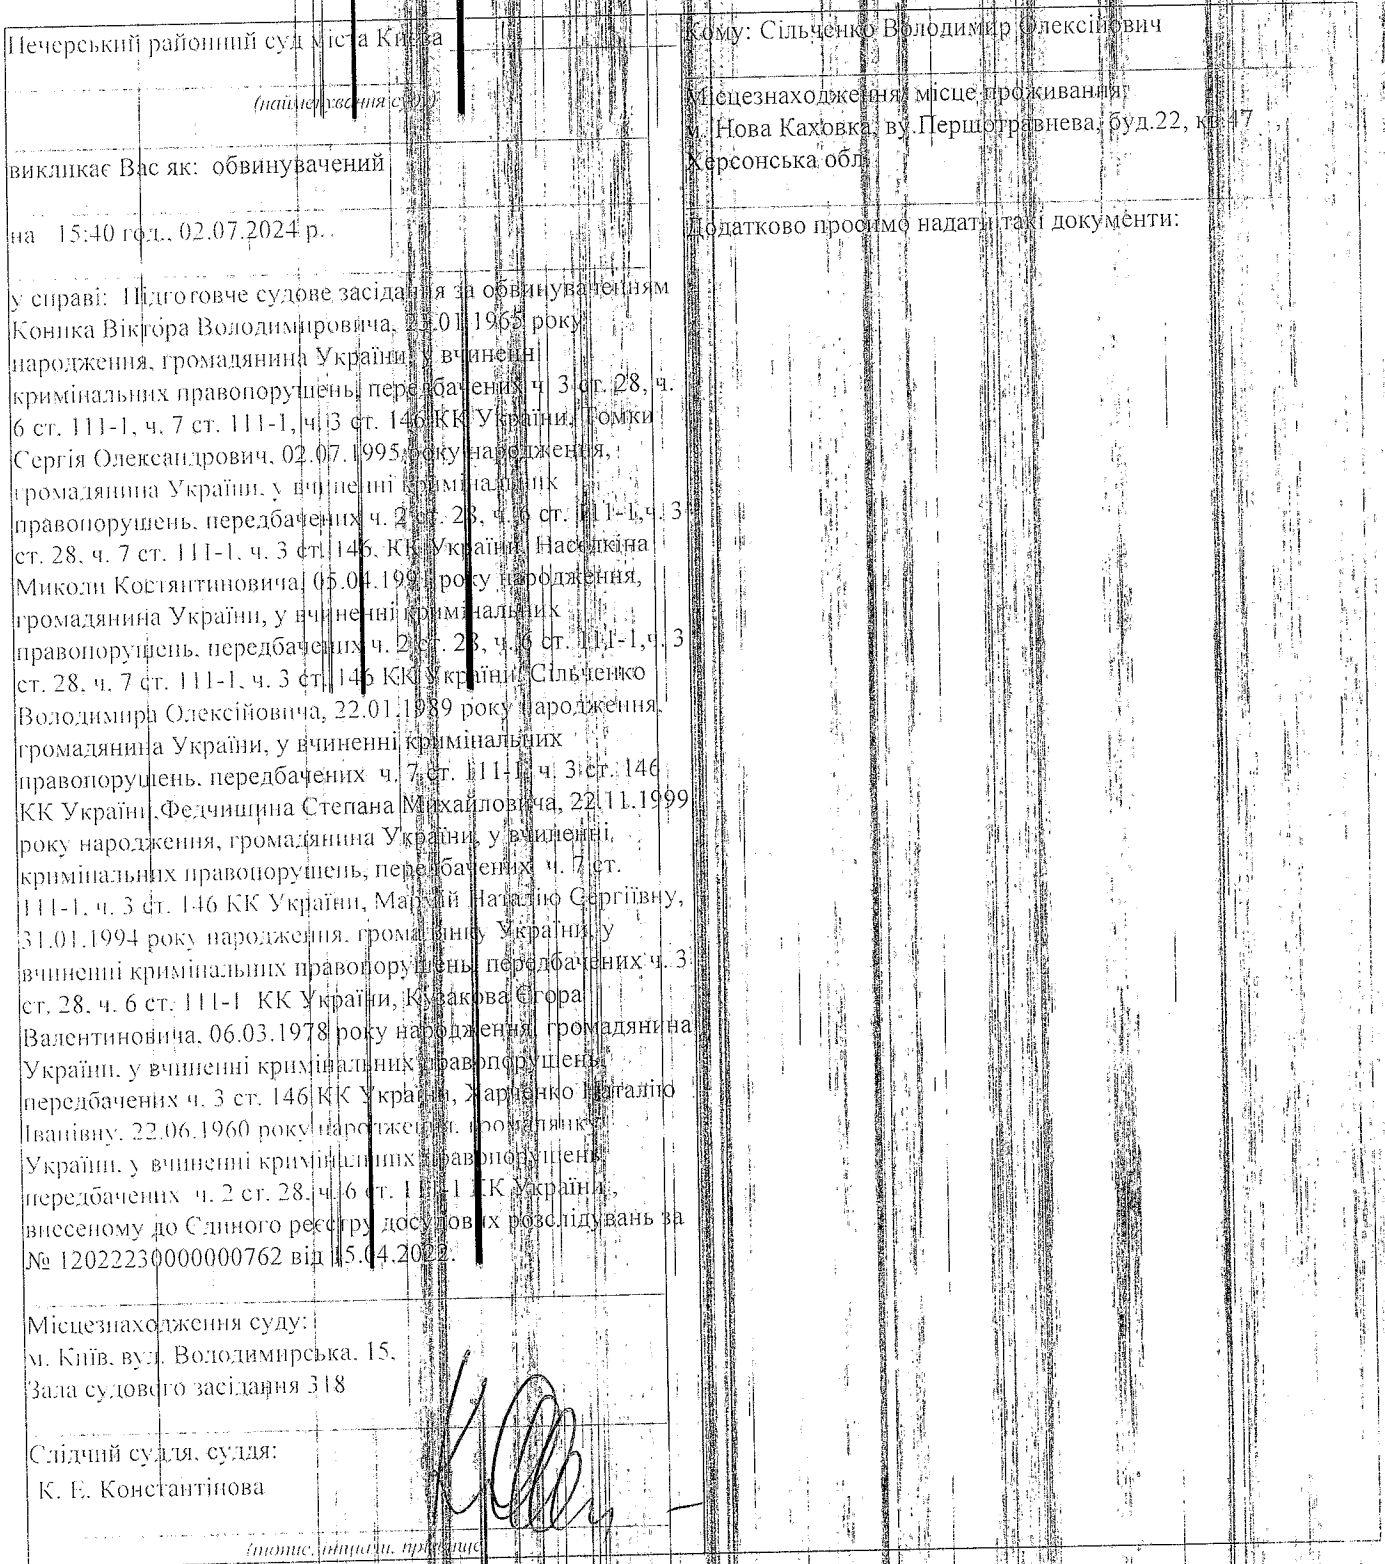 Печерський районний суд міста Києва
(найменування суду)
викликає Вас як: обвинувачений
на 15:40 год., 02.07.2024 р.
у справі: Підготовче судове засідання за обвинуваченням
Коника Віктора Володимировича, 01.1965 року
народження, громадянина України, у вчиненні
кримінальних правопорушень, передбачених ч. 3 ст. 28, ч.
6 ст. 111-1, ч. 7 ст. 111-1, ч. 3 ст. 146 КК України, Томки
Сергія Олександрович, 02.07.1995 року народження,
громадянина України, у вчиненні кримінальних
правопорушень, передбачених ч. 2 ст. 28, ч. 6 ст. 111-1, ч. 3
ст. 28, ч. 7 ст. 111-1, ч. 3 ст. 146, КК України, Наседкіна
Миколи Костянтиновича, 05.04.199 року народження,
громадянина України, у вчиненні кримінальних
правопорушень, передбачених ч. 2 ст. 28, ч. 6 ст. 111-1, ч. 3
ст. 28, ч. 7 ст. 111-1, ч. 3 ст. 146 КК України, Сільченко
Володимира Олексійовича, 22.01.1989 року народження,
громадянина України, у вчиненні кримінальних
правопорушень, передбачених ч. 7 ст. 111-1, ч. 3 ст. 146
КК України, Федчишина Степана Михайловича, 22.11.1999
року народження, громадянина України, у вчиненні
кримінальних правопорушень, передбачених ч. 7 ст.
111-1, ч. 3 ст. 146 КК України, Наталію Сергіївну,
31.01.1994 року народження, громадянку України, у
вчиненні кримінальних правопорушень, передбачених ч. 3
ст. 28, ч. 6 ст. 111-1 КК України, Кузакова Єгора
Валентиновича, 06.03.1978 року народження, громадянина
України, у вчиненні кримінальних правопорушень,
передбачених ч. 3 ст. 146 КК України, Харченко Наталію
Іванівну, 22.06.1960 року народження, громадянку
України, у вчиненні кримінальних правопорушень,
передбачених ч. 2 ст. 28, ч. 6 ст. 111-1 КК України,
внесеному до Єдиного реєстру досудових розслідувань за
№ 12022230000000762 від 15.04.2022.
Місцезнаходження суду:
м. Київ, вул. Володимирська, 15,
Зала судового засідання 318
Слідчий суддя, суддя:
К. Е. Константінова
(підпис, ініціали, прізвище)
Кому: Сільченко Володимир Олексійович
Місцезнаходження/ місце проживання:
м. Нова Каховка, ву.Першотравнева, буд.22, кв.47
Херсонська обл
Додатково просимо надати такі документи: